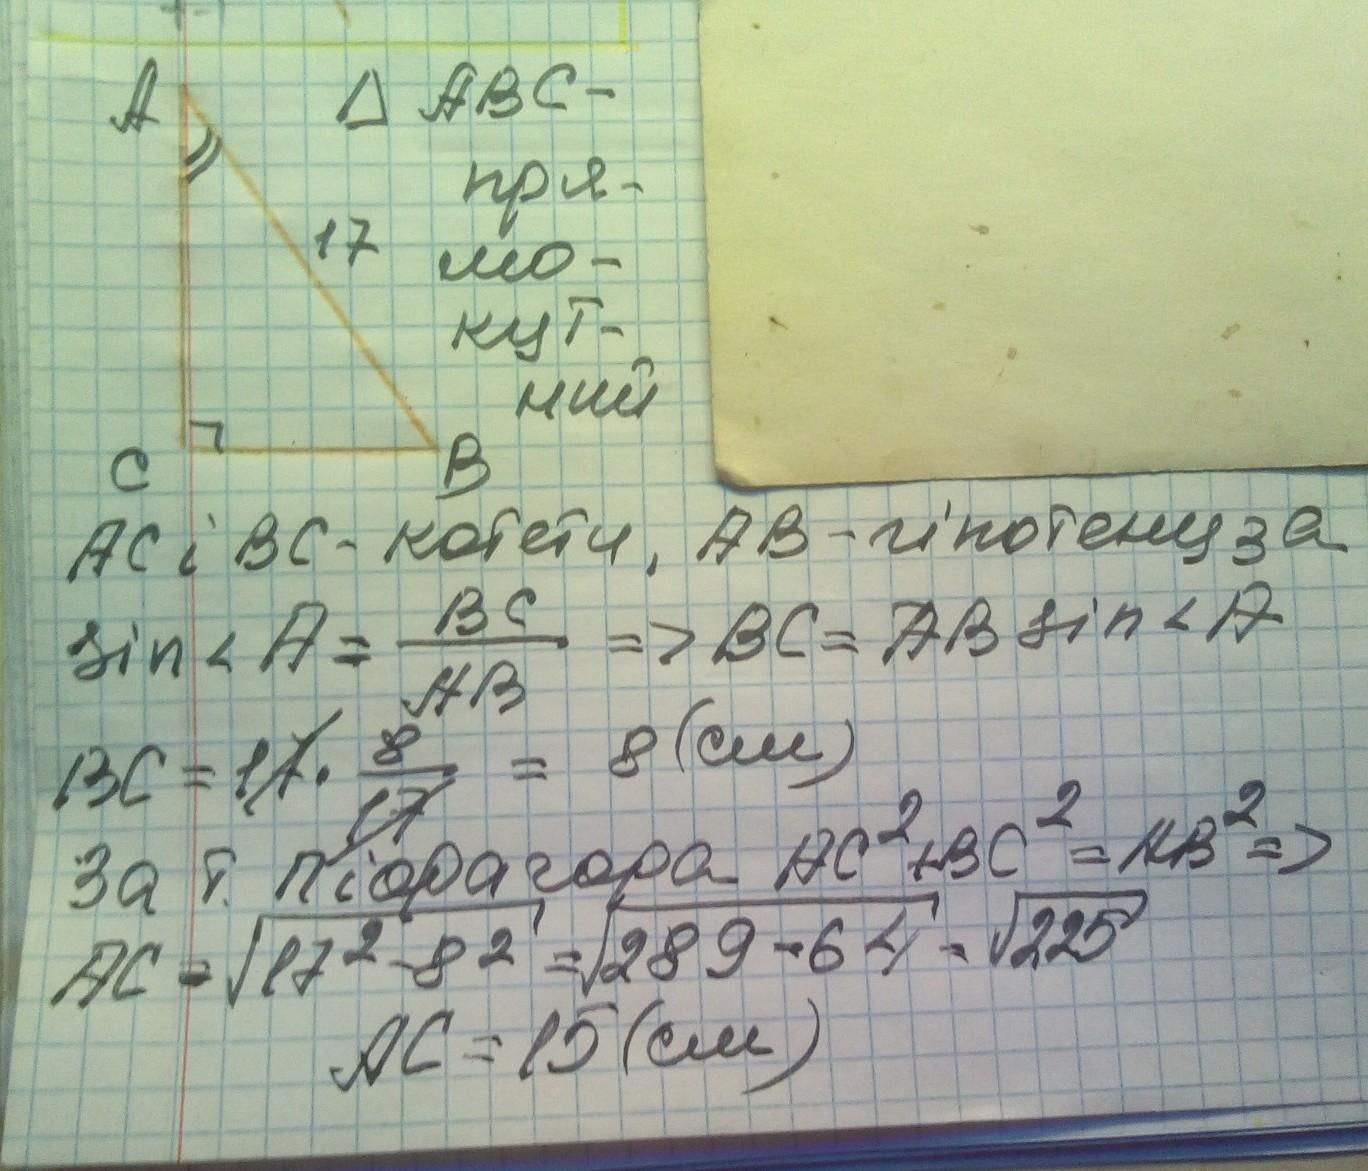 A
Δ ABC-
пря-
17
мо-
кут-
ний
C
B
AC і BC - катети, AB - гіпотенуза
sin < A = BC / AB => BC = AB sin < A
BC = 17 · 8 / 17 = 8 (см)
За т. Піфагора AC² + BC² = AB² =>
AC = √17² - 8² = √289 - 64 = √225
AC = 15 (см)